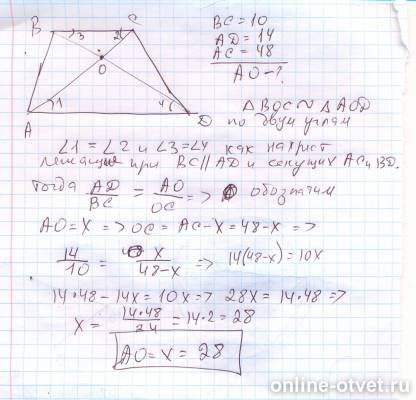 B 3 2 C
O
1 4
A D
BC = 10
AD = 14
AC = 48
AO - ?
△ BOC ∾ △ AOD
по двум углам
∠1 = ∠2 и ∠3 = ∠4 как накрест
лежащие при BC ∥ AD и секущих AC и BD.
Тогда AD/BC = AO/OC => обозначим
AO = X => OC = AC - X = 48 - X =>
14/10 = X/48-X => 14(48-x) = 10X
14·48 - 14X = 10X => 28X = 14·48 =>
X = 14·48/24 = 14·2 = 28
AO = X = 28
online-otvet.ru